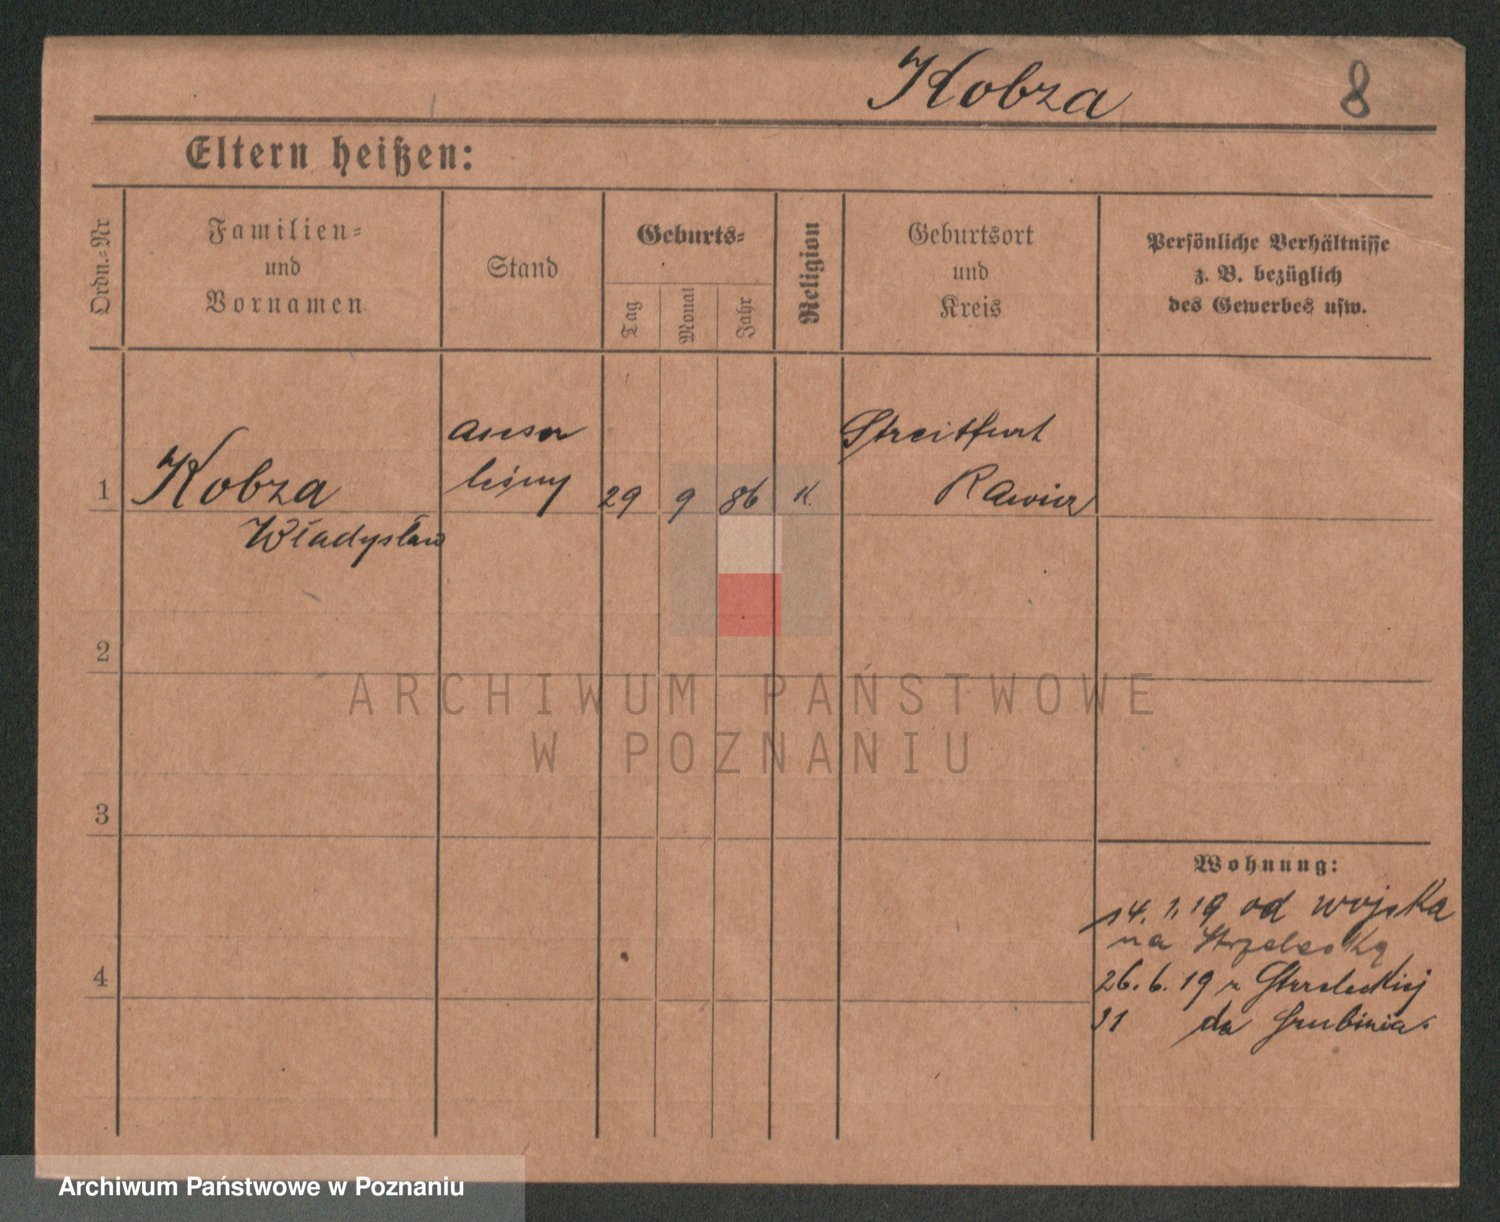 Kobza 8
Eltern heißen:
Ordn.-Nr
Familien-
und
Vornamen
Stand
Geburts-
Tag
Monat
Jahr
Religion
Geburtsort
und
Kreis
Persönliche Verhältnisse
z. B. bezüglich
des Gewerbes usw.
asesor
leśny
Streitfurt
1 Kobza 29 9 86 K. Rawicz
Władysław
2
ARCHIWUM PAŃSTWOWE
W POZNANIU
3
Wohnung:
14. 1. 19 od wojska
na Strzelecką
4
26. 6. 19 z Strzeleckiej
31 do
Archiwum Państwowe w Poznaniu